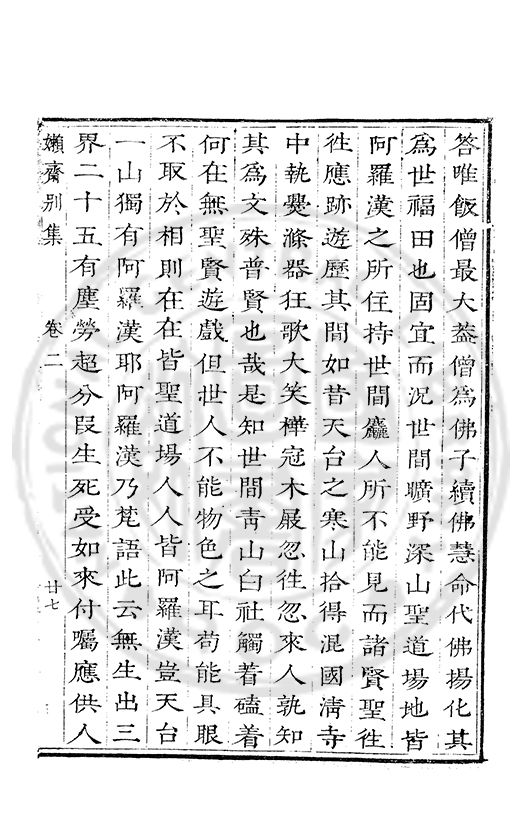 答唯飯僧最大葢僧爲佛子續佛慧命代佛揚化其
爲世福田也固宜而況世間曠野深山聖道場地皆
阿羅漢之所住持世間麤人所不能見而諸賢聖徃
徃應跡遊歷其間如昔天台之寒山拾得混國淸寺
中執爨滌器狂歌大笑樺冦木屐忽徃忽來人孰知
其爲文殊普賢也哉是知世間靑山白社觸着磕着
何在無聖賢遊戲但世人不能物色之耳苟能具眼
不取於相則在在皆聖道場人人皆阿羅漢豈天台
一山獨有阿羅漢耶阿羅漢乃梵語此云無生出三
界二十五有塵勞超分段生死受如來付囑應供人
嬾齋别集 卷二 廿七